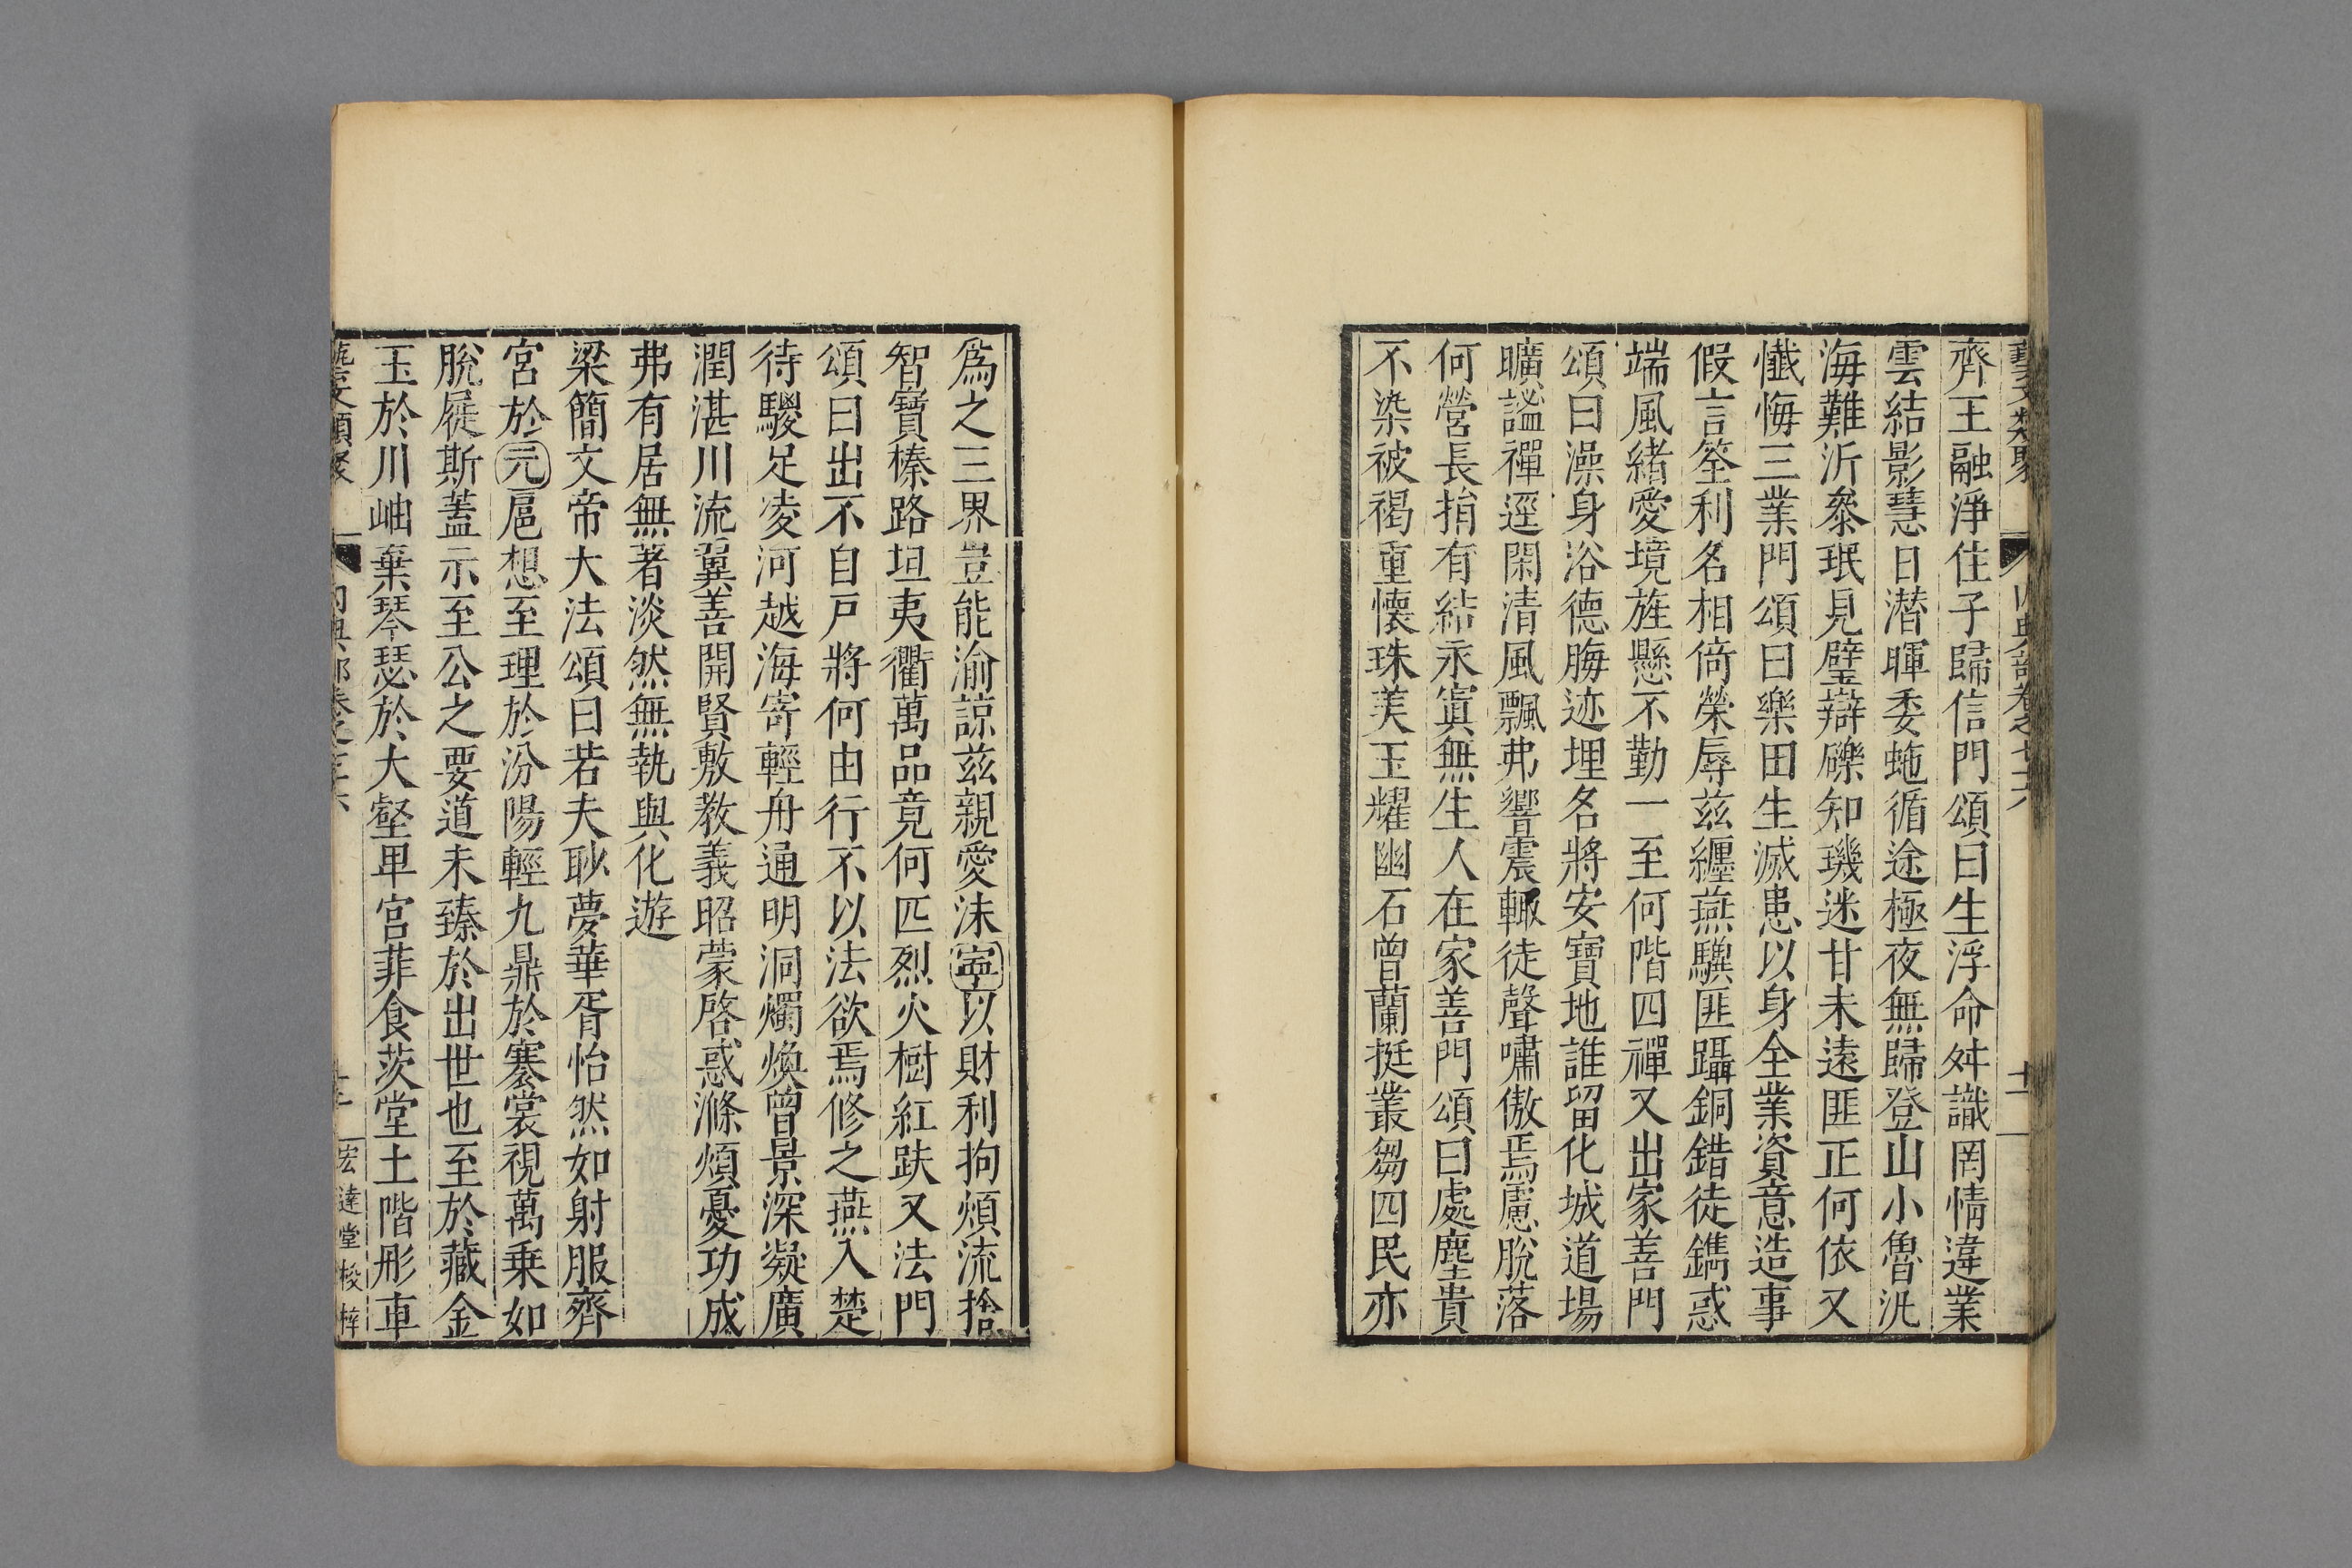 齊王融淨住子歸信門頌曰生浮命舛識罔情違業
雲結影慧日潛暉委虵循途極夜無歸登山小魯泚
海難沂叅珉見璧辯礫知璣迷甘未遠匪正何依又
懺悔三業門頌曰樂田生滅患以身全業資意造事
假言筌利名相倚榮辱茲纏燕驥匪躡銅錯徒鐫惑
端風緒愛境旌懸不勤一至何階四禪又出家善門
頌曰澡身浴德脢迹埋名將安寶地誰留化城道場
曠謐禪逕閑清風飄弗響震輙徒聲嘯傲焉慮脫落
何營長捐有結永寘無生人在家善門頌曰處塵貴
不染被褐重懷珠美玉耀幽石曾蘭挺叢芻四民亦
爲之三界豈能渝諒茲親愛沫寧以財利拘煩流捨
智寶榛路坦夷衢萬品竟何匹烈火樹紅趺又法門
頌曰出不自戸將何由行不以法欲焉修之燕入楚
待騣足凌河越海寄輕舟通明洞燭煥曾景深凝廣
潤湛川流翼善開賢敷教義昭蒙啓惑滌煩憂功成
弗有居無著淡然無執與化遊
梁簡文帝大法頌曰若夫眇夢華胥怡然如射服齊
宮於元扈想至理於汾陽輕九鼎於褰裳視萬乗如
脫屣斯蓋示至公之要道未臻於出世也至於藏金
玉於川岫棄琴瑟於大壑畢宮菲食茨堂土階彤車
藝文類聚 內典部卷之七十六 宏達堂校梓